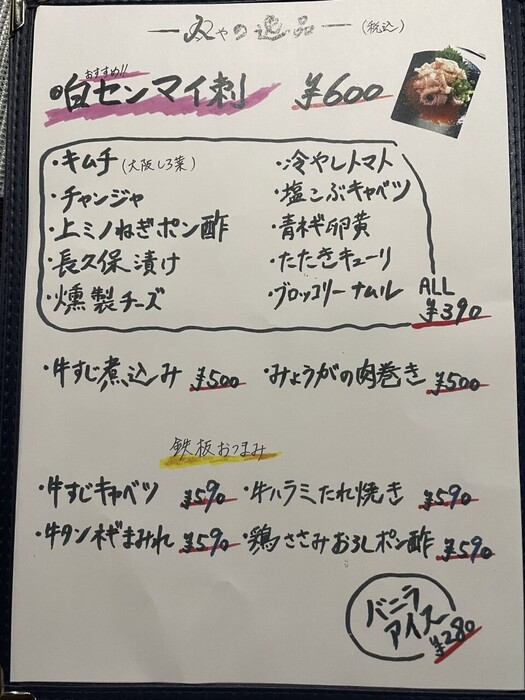 ーみやの逸品ー (税込)
おすすめ!!
・白センマイ刺 ¥600
・キムチ(大阪しろ菜) ・冷やしトマト
・チャンジャ ・塩こぶキャベツ
・上ミノねぎポン酢 ・青ネギ卵黄
・長久保漬け ・たたきキューリ
・燻製チーズ ・ブロッコリーナムル
ALL
¥390
・牛すじ煮込み ¥500 ・みょうがの肉巻き ¥500
鉄板おつまみ
・牛すじキャベツ ¥590 ・牛ハラミたれ焼き ¥590
・牛タンネギまみれ ¥590 ・鶏ささみおろしポン酢 ¥590
バニラ
アイス
¥280